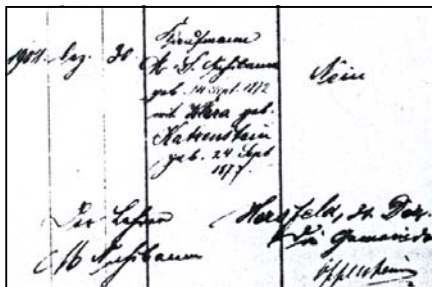 1904. Dez. 30.
Kaufmann
M. S. Nußbaum
geb. 14 Sept. 1872
mit Klara geb.
Katzenstein
geb. 24 Sept
1877.
Nein
Der Lehrer
M Nußbaum
Hersfeld, 31. Dez.
Die Gemeinde
Oppenheim